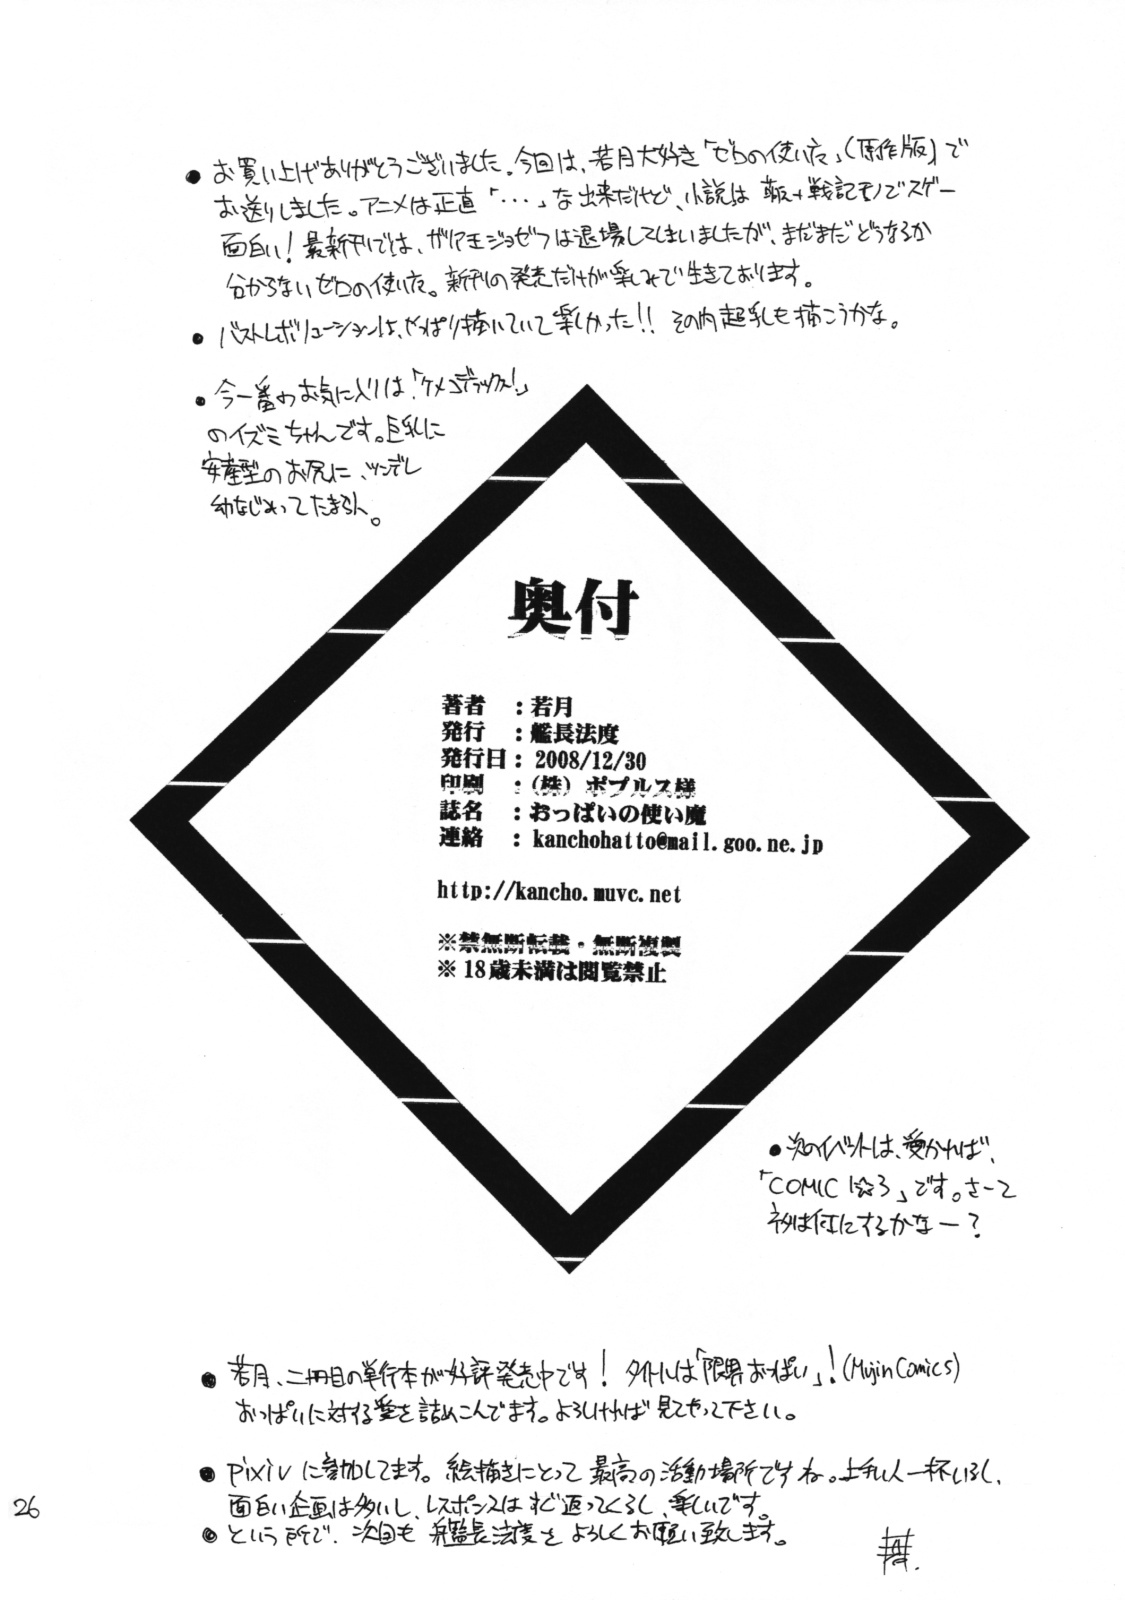 ● お買い上げありがとうございました。今回は、若月大好き「ゼロの使い魔」(原作版)で
お送りしました。アニメは正直「・・・」な出来だけど、小説は 萌え+戦記モノでスゲー
面白い! 最新刊では、ガリア王ジョゼフは退場してしまいましたが、まだまだどうなるか
分からないゼロの使い魔。新刊の発売だけが楽しみで生きております。
● バストレボリューションは、やっぱり描いていて楽しかった!! その内超乳も描こうかな。
● 今一番のお気に入りは「ケメコデラックス!」
のイズミちゃんです。巨乳に
安産型のお尻に、ツンデレ
幼なじみってたまらん。
奥付
著者 :若月
発行 :艦長法度
発行日: 2008/12/30
印刷 :(株) ポプルス様
誌名 :おっぱいの使い魔
連絡 : kanchohatto@mail.goo.ne.jp
http://kancho.muvc.net
※禁無断転載・無断複製
※18歳未満は閲覧禁止
● 次のイベントは、受かれば、
「COMIC 1☆3」です。さーて
ネタは何にするかなー?
● 若月、二冊目の単行本が好評発売中です! タイトルは「限界おっぱい」!(Mujin Comics)
おっぱいに対する愛を詰めこんでます。よろしければ見てやって下さい。
● pixivに参加してます。絵描きにとって最高の活動場所ですね。上手い人一杯いるし、
面白い企画は多いし、レスポンスはすぐ返ってくるし、楽しいです。
● という所で、次回も艦長法度をよろしくお願い致します。
26